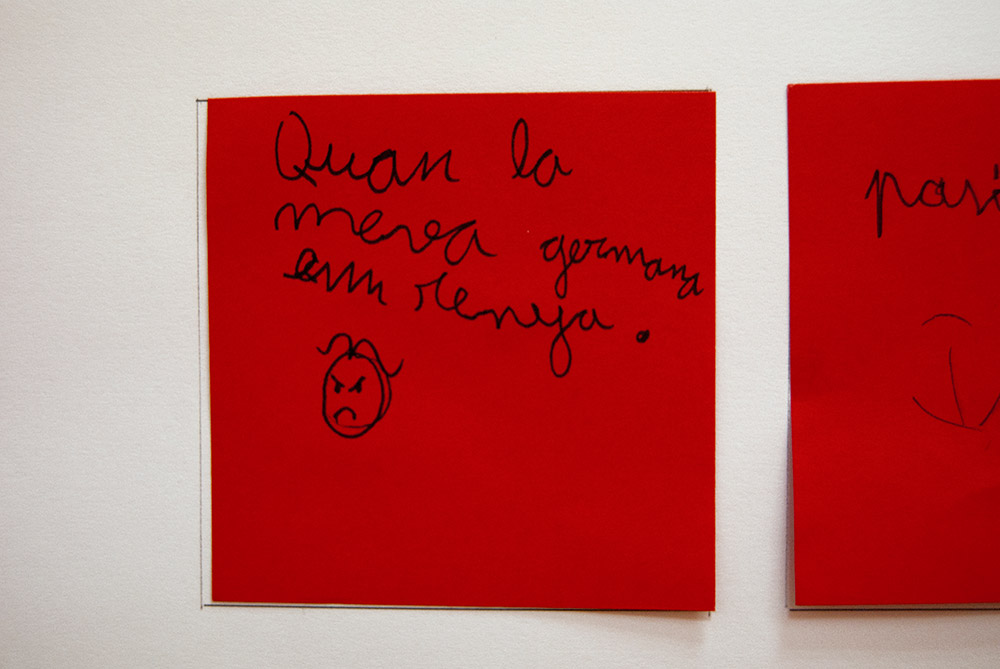 Quan la
meva germana
em renya.